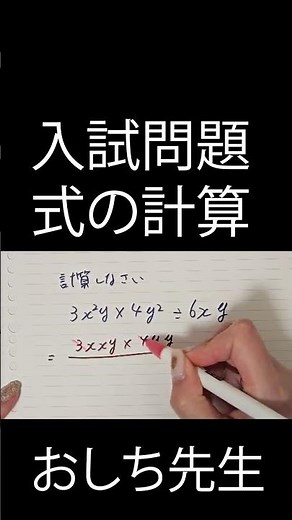 入試問題
式の計算
計算しなさい
3x²y × 4y² ÷ 6xy
= 3xxy × 4
おしち先生